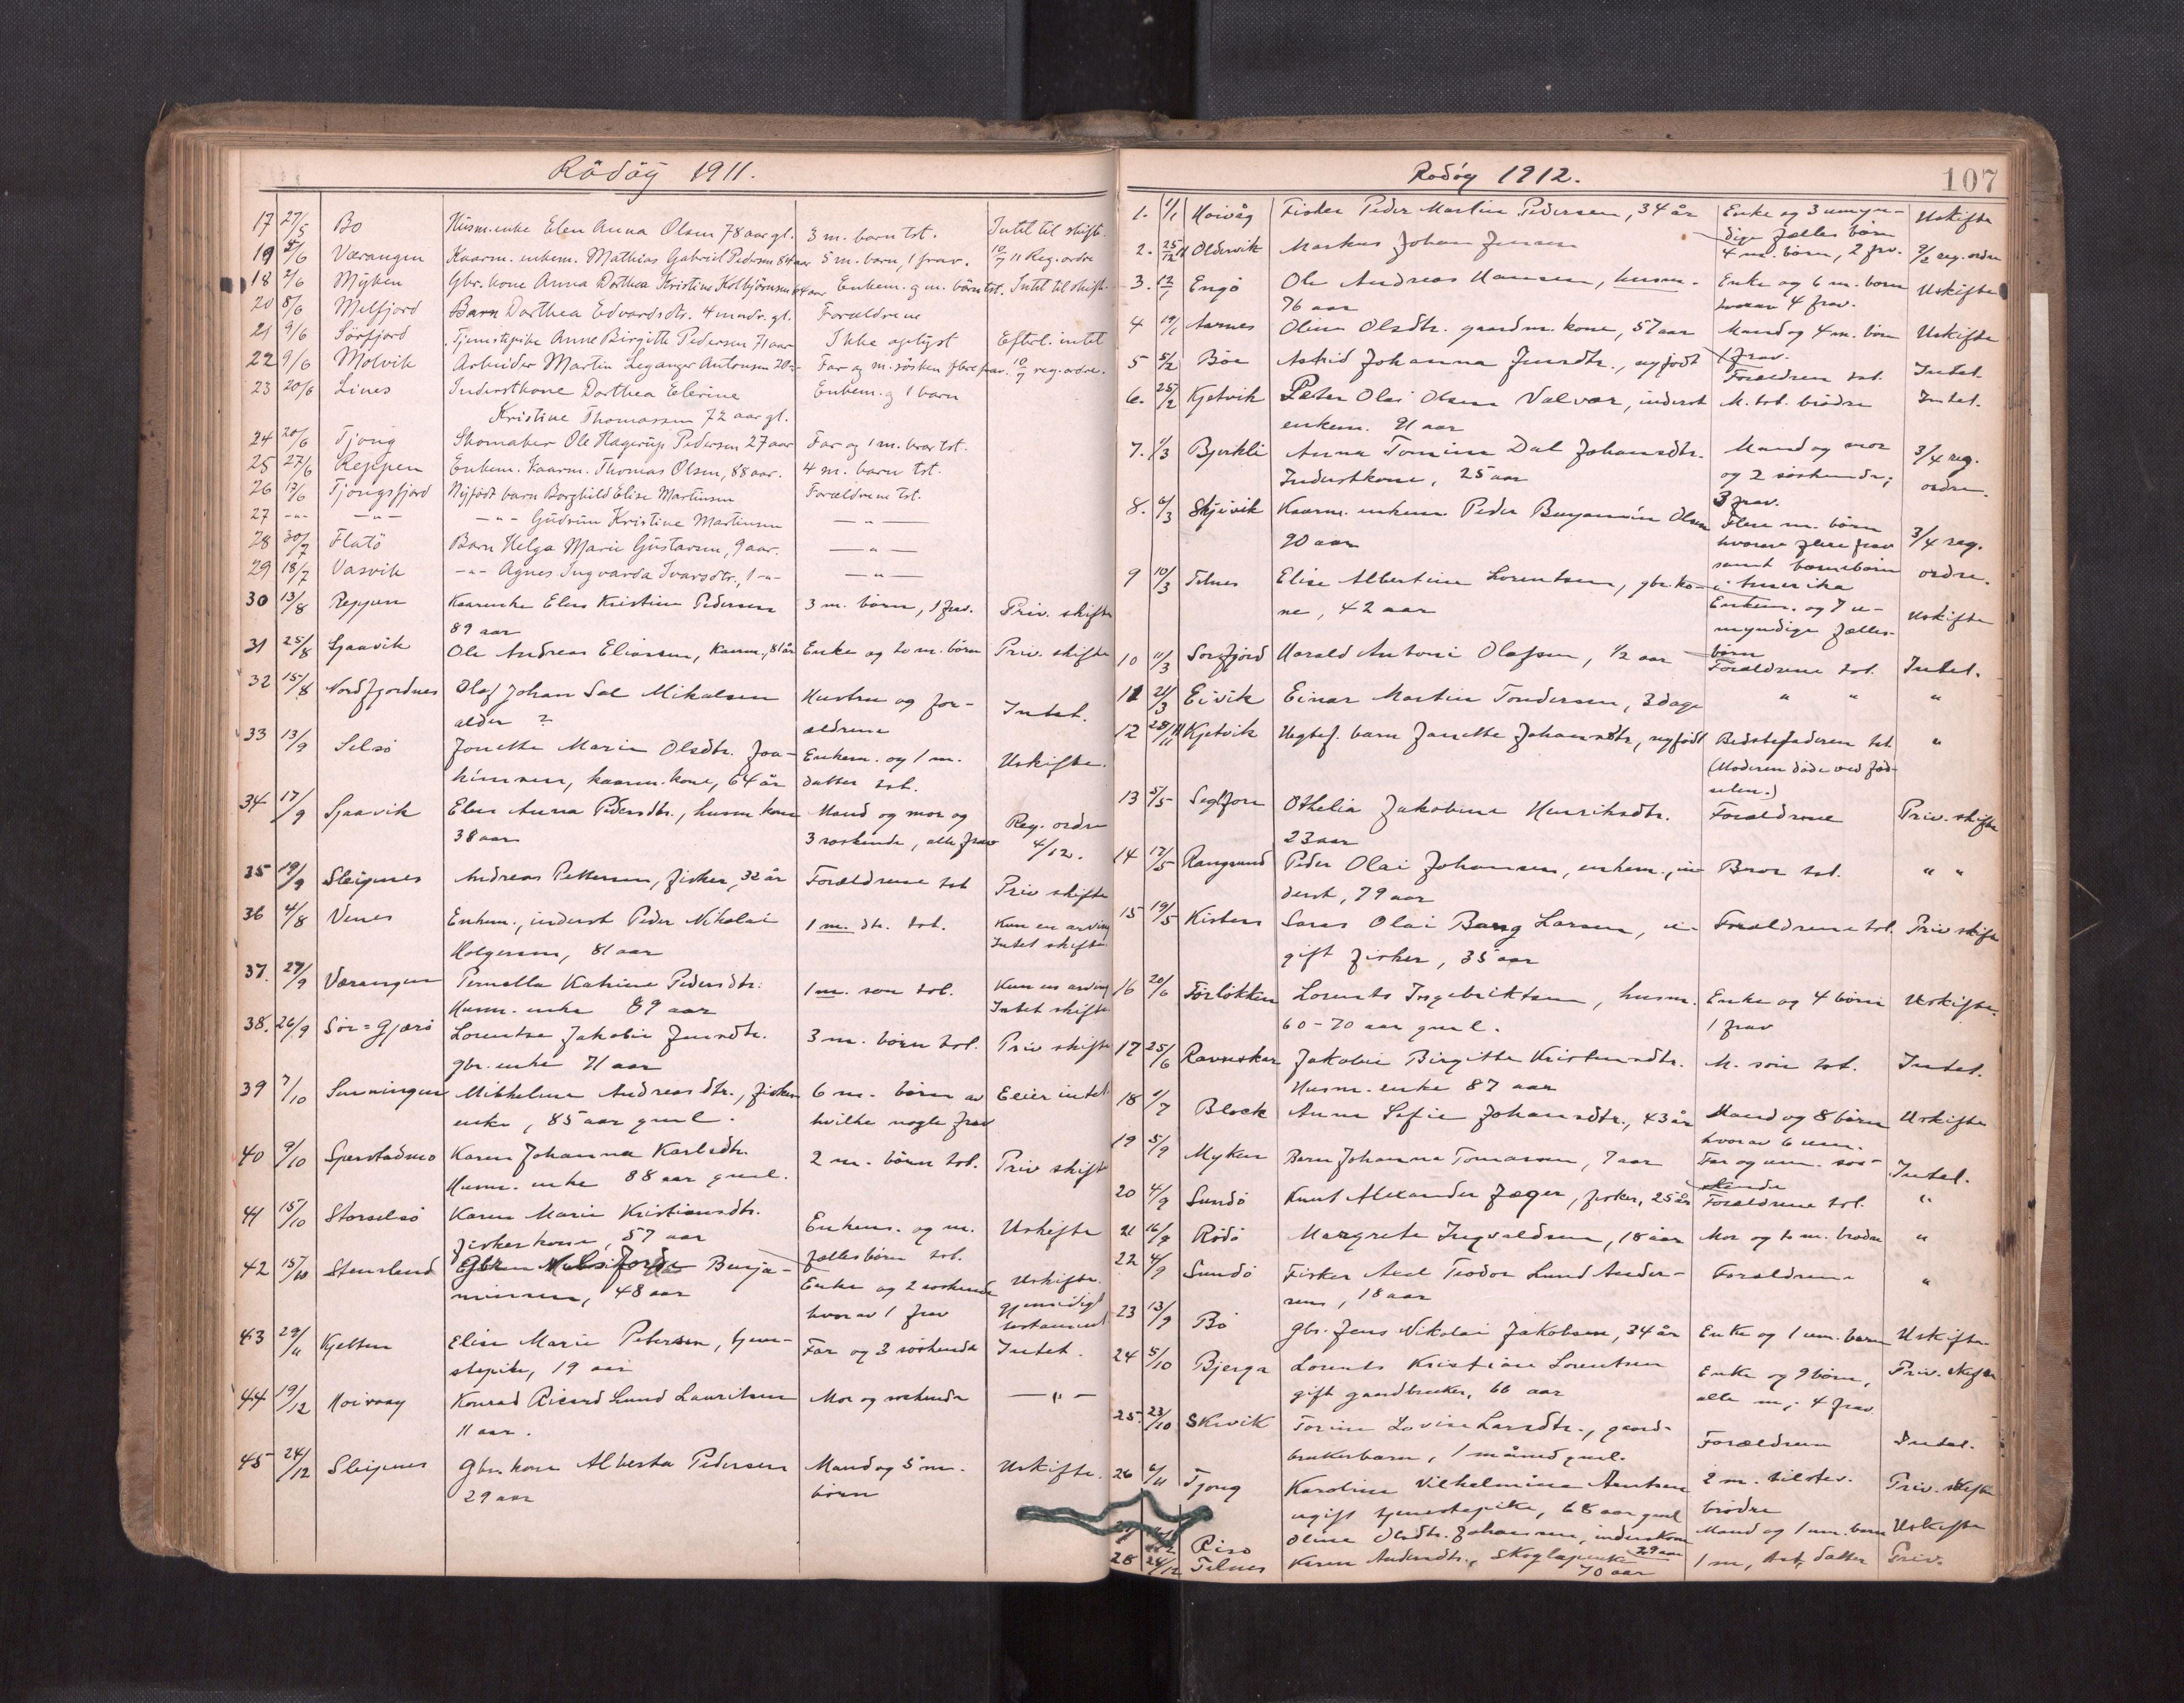 Rödöy 1911.
17 27/5 Bo Husm.enke Elen Anna Olsen 78 aar gl. 3 m. barn tst. Intet til skift.
19 5/6 Værangen Kaarm. enkem. Mathias Gabriel Pedersen 84 aar 5 m. barn, 1 frav. 10/7 11 Reg. ordre
18 2/6 Myken Gbr. kone Anna Dorthea Kristine Kolbjörnsen 64 aar Enkem. g m. börn tst. Intet til skift.
20 8/6 Melfjord Barn Dorthea Edvardsdtr. 4 mndr. gl. Forældrene
21 9/6 Sörfjord Tjenestepike Anne Birgitte Pedersen 71 aar Ikke oplyst Efterl. intet
22 9/6 Molvik Arbeider Martin Leganger Antonsen 20 -"- Far og m. sösken flere frav. 10/7 reg. ordre.
23 20/6 Lines Inderstkone Dorthea Elerine Enkem. g 1 barn
Kristine Thomassen 72 aar gl.
24 20/6 Tjong Skomaker Ole Hagerup Pedersen 27 aar Far og 1 m. bror tst.
25 27/6 Reppen Enkem. Kaarm. Thomas Olsen, 88 aar. 4 m. barn tst.
26 17/6 Tjongsfjord Nyfödt barn Borghild Elise Martinsen Forældrene tst.
27 -"- -"- -"- Gudrun Kristine Martinsen -"-
28 30/7 Flatö Barn Helga Marie Gustavsen, 9 aar. -"-
29 18/7 Vasvik -"- Agnes Ingvarda Ivarsdtr., 1 -"- -"-
30 13/8 Reppen Kaarenke Elen Kristine Pedersen 3 m. börn, 1 frav. Priv. skifte
89 aar
31 25/8 Gjaavik Ole Andreas Eliassen, kaarm., 81 år Enke og to m. börn Priv. skifte
32 15/8 Nordfjordnes Olaf Johan Sal Mikalsen Hustru og for- Intet.
alder ? ældrene
33 13/9 Selsö Jonette Marie Olsdtr. Joa- Enkem. og 1 m. Uskifte.
kimsen, kaarm. kone, 64 år datter tst.
34 17/9 Gjaavik Elen Anna Pedersdtr., husm. kone Mand og mor og Reg. ordre
38 aar 3 söskende, alle frav 4/12.
35 19/9 Sleipnes Andreas Pettersen, fisker, 32 år Forældrene tst Priv skifte
36 4/8 Venes Enkem., inderst Peder Nikolai 1 m. dtr. tst. Kun en arving
Holgersen, 81 aar Intet skifte
37. 27/9 Værangen Pernella Katrine Pedersdtr. 1 m. søn tst. Kun en arving
Husm. enke 89 aar Intet skifte
38. 26/9 Sör=Gjærö Lorentse Jakobie Jensdtr. 3 m. börn tst. Priv skifte
gbr. enke 71 aar
39 7/10 Sunningen Mikkeline Andreasdtr., fisker 6 m. börn av Eeier intet
enke, 85 aar gml. hvilke nogle frav
40 9/10 Sperstadmo Karen Johanna Karlsdtr. 2 m. börn tst. Priv skifte
Husm. enke 88 aar gml.
41 15/10 Storselsö Karen Marie Kristiansdtr. Enkem. og m. Uskifte
fisker kone, 57 aar fælles börn tst.
42 15/10 Stensland Gbr. Benja- Enke og 2 söskende Uskifte.
minsen, 48 aar hvorav 1 frav gjensidigt
testament
43 29/11 Kjelsen Elise Marie Petersen, tjene- Far og 3 söskende Intet.
stepike, 19 aar
44 19/12 Hoivaag Konrad Ricard Lund Lauritsen Mor og söskende -"-
11 aar.
45 24/12 Sleipnes Gbr. kone Alberta Pedersen Mand og 5 m. Uskifte.
29 aar börn
Rödöy 1912.
107
1. 1/1 Hoivåg Fisker Peder Martin Pedersen, 34 år Enke og 3 umyn- Uskifte
dige fælles börn
2. 25/12 11 Oldervik Markus Johan Jensen 4 m. börn, 2 frv. 9/2 reg. ordre
3. 12/1 Engö Ole Andreas Hansen, husm. Enke og 6 m. börn Uskifte
76 aar hvorav 4 frav.
4 19/1 Aarnes Oline Olsdtr. gaardm. kone, 57 aar Mand og 4 m. börn Uskifte
1 frav.
5 5/2 Böe Astrid Johanna Jensdtr., nyfödt Forældren tst. Intet.
6. 25/2 Kjetvik Peter Olai Olsen Valvær, inderst M. tst. brödre Intet.
enkem. 91 aar
7. 1/3 Bjerkli Anna Tomine Dal Johansdtr. Mand og mor 3/4 reg.
Inderstkone, 25 aar og 2 söskende, ordre.
3 frav.
8. 6/3 Skjevik Kaarm. enkem Peder Benjamin Olsen Flere m. börn 3/4 reg.
90 aar hvorav flere frav ordre.
samt barnebörn
9 10/3 Telnes Elise Albertine Lorentsen, gbr. ko- i Amerika
ne, 42 aar Enkem. og 7 u- Uskifte
myndige fælles-
börn
10 11/3 Sörfjord Harald Antoni Olafsen, 1/2 aar Forældrene tst. Intet.
11 21/3 Eivik Einar Martin Tondersen, 3 dage " " "
12 28/11 11 Kjetvik Uegtef. barn Janette Johansdtr, nyfödt Bedstefaderen tst. "
(Moderen döde ved föd-
selen.)
13 5/5 Segelfore Othelia Jakobine Henriksdtr. Forældrene Priv. skifte
23 aar
14 17/5 Rangsund Peder Olai Johansen, enkem., in- Bror tst. " "
derst, 79 aar
15 19/5 Kisten Olai Bang Larsen, u- Forældrene tst. Priv skifte
gift fisker, 35 aar
16 20/6 Förlökken Lorents Ingebriktsen, husm. Enke og 4 börn Uskifte.
60-70 aar gml. 1 frav
17 25/6 Ravnskar Jakobie Birgitte Kristensdtr. M. sön tst. Intet.
Husm. enke 87 aar
18 1/7 Block Anne Sofie Johansdtr., 43 år Mand og 8 börn Uskifte
hvorav 6 um.
19 5/9 Myken Barn Johanna Tomassen, 7 aar Far og um. sös- Intet.
kende
20 4/9 Sundö Knut Alexander Jæger, fisker, 25 år Forældrene tst. "
21 16/8 Rödö Margrete Ingvaldsen, 18 aar Mor og to m. brödre "
22 4/9 Sundö Fisker Axel Teodor Lund Ander- Forældrene "
sen, 18 aar
23 13/9 Bö Gbr. Jens Nikolai Jakobsen, 34 år Enke og 1 um. barn Uskifte
24 5/10 Bjerga Lorents Kristian Lorentsen Enke og 9 börn, Priv. skifte
gift gaardbruker, 66 aar alle m,. 4 frav
25. 23/10 Skivik Torine Lovise Larsdtr., gaard- Forældren Intet.
brukerbarn, 1 måned gml.
26 6/11 Tjong Karoline Vilhelmine Arntsen 2 m. tilstev. Priv. skifte
ugift tjenestepike, 68 aar gml brödre
27 Risö Oline Olsdtr. Johansen, inderskone Mand og 1 um. barn Uskifte
29 aar
28 24/12 Telnes Karen Andersdtr., Skoglapenke 1 m, tst, datter Priv.
70 aar